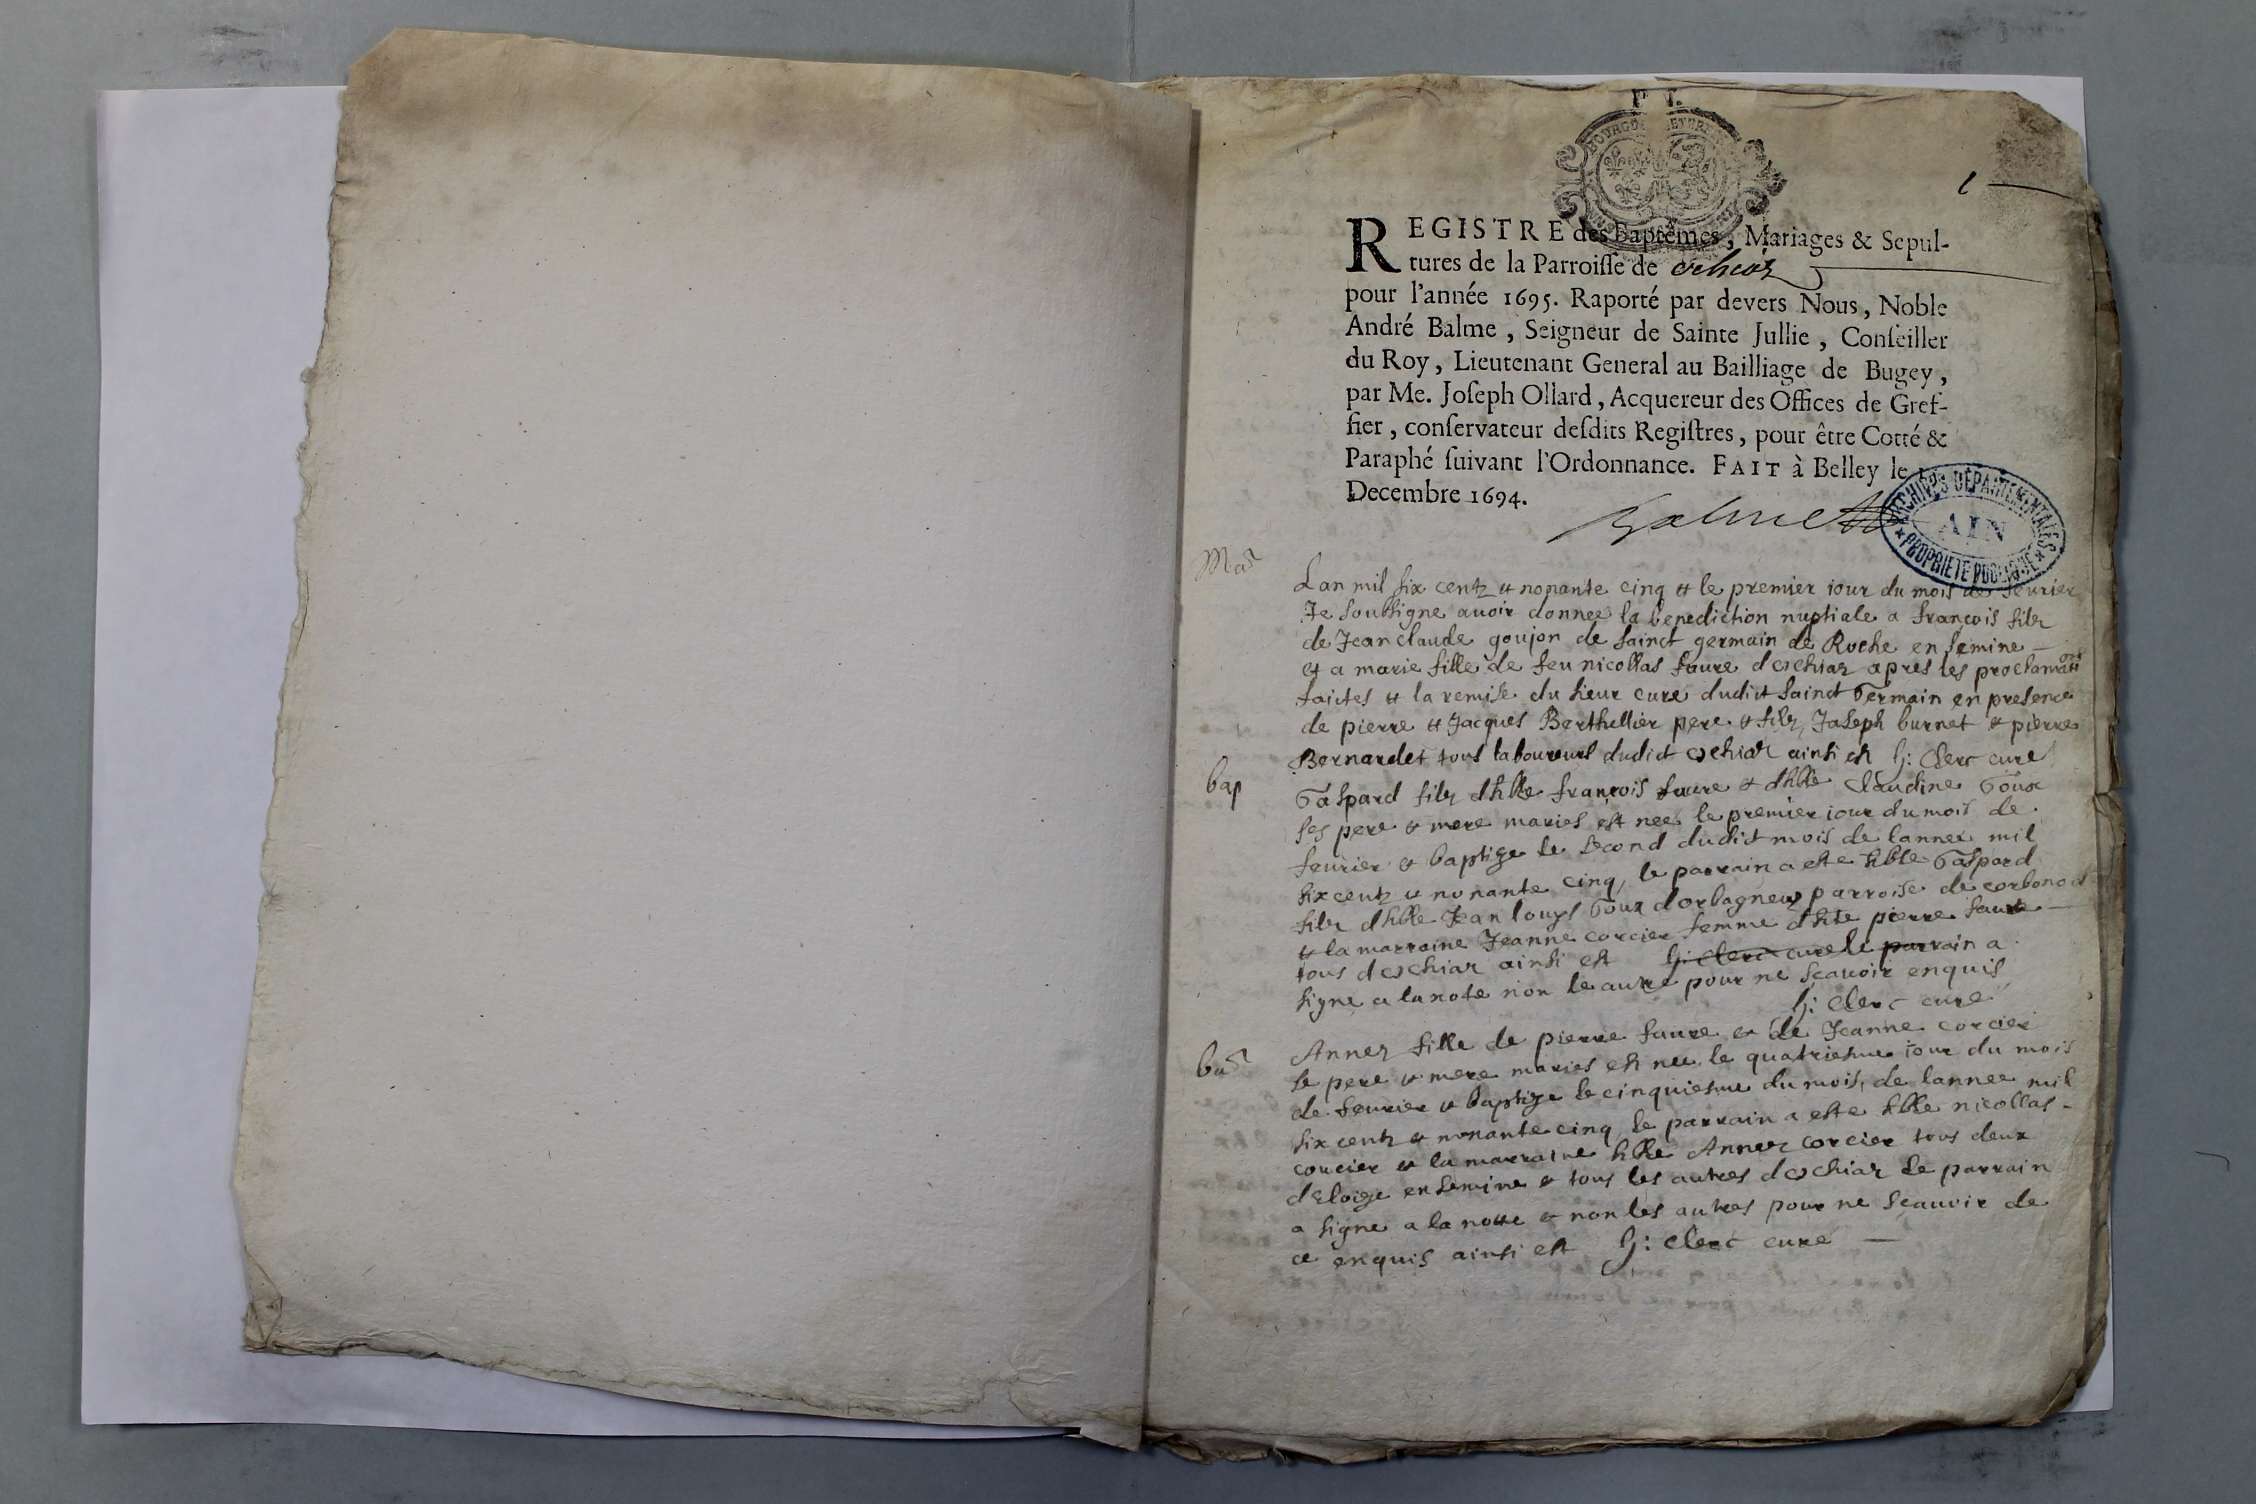 1
REGISTRE des Baptêmes, Mariages & Sepul-
tures de la Parroisse de ochiaz
pour l'année 1695. Raporté par devers Nous, Noble
André Balme, Seigneur de Sainte Jullie, Conseiller
du Roy, Lieutenant General au Bailliage de Bugey,
par Me. Joseph Ollard, Acquereur des Offices de Gref-
fier, conservateur desdits Registres, pour être Cotté &
Paraphé suivant l'Ordonnance. FAIT à Belley le
Decembre 1694.
Balme
ARCHIVES DÉPARTEMENTALES
AIN
* PROPRIETE PUBLIQUE *
Mar
Lan mil six centz et nonante cinq et le premier iour du mois de feurier
Je soubsigne auoir donnee la benediction nuptiale a françois filz
de Jean claude goujon de sainct germain de Roche en semine
et a marie fille de feu nicollas faure dochiaz apres les proclamaons
faictes et la remise du sieur cure dudict sainct Germain en presence
de pierre et Jacques Berthellier pere et filz, Joseph burnet et pierre
Bernardet tous laboureurs dudict ochiaz ainsi est h: Clerc cure
bap
Gaspard filz dhble françois faure et dhble Claudine Goux
ses pere et mere maries est nee le premier iour du mois de
feurier et baptize le second dudict mois de lannee mil
six centz et nonante cinq, le parrain a este hble Gaspard
filz dhble Jean louys Goux dorbagneux parroise de corbonod
et la marraine Jeanne corcier femme dhble pierre faure
tous dochiaz ainsi est h: Clerc cure le parrain a
signe a la note non le autre pour ne sçauoir enquis
h: Clerc cure
bap
Annez fille de pierre faure et de Jeanne corcier
se pere et mere maries est nee le quatriesme iour du mois
de feurier et baptize le cinquiesme du mois, de lannee mil
six centz et nonante cinq le parrain a este hble nicollas
corcier et la marraine hble Annez corcier tous deux
deloige en semine et tous les autres dochiaz le parrain
a signe a la notte et non les autres pour ne sçauoir de
ce enquis ainsi est h: Clerc cure